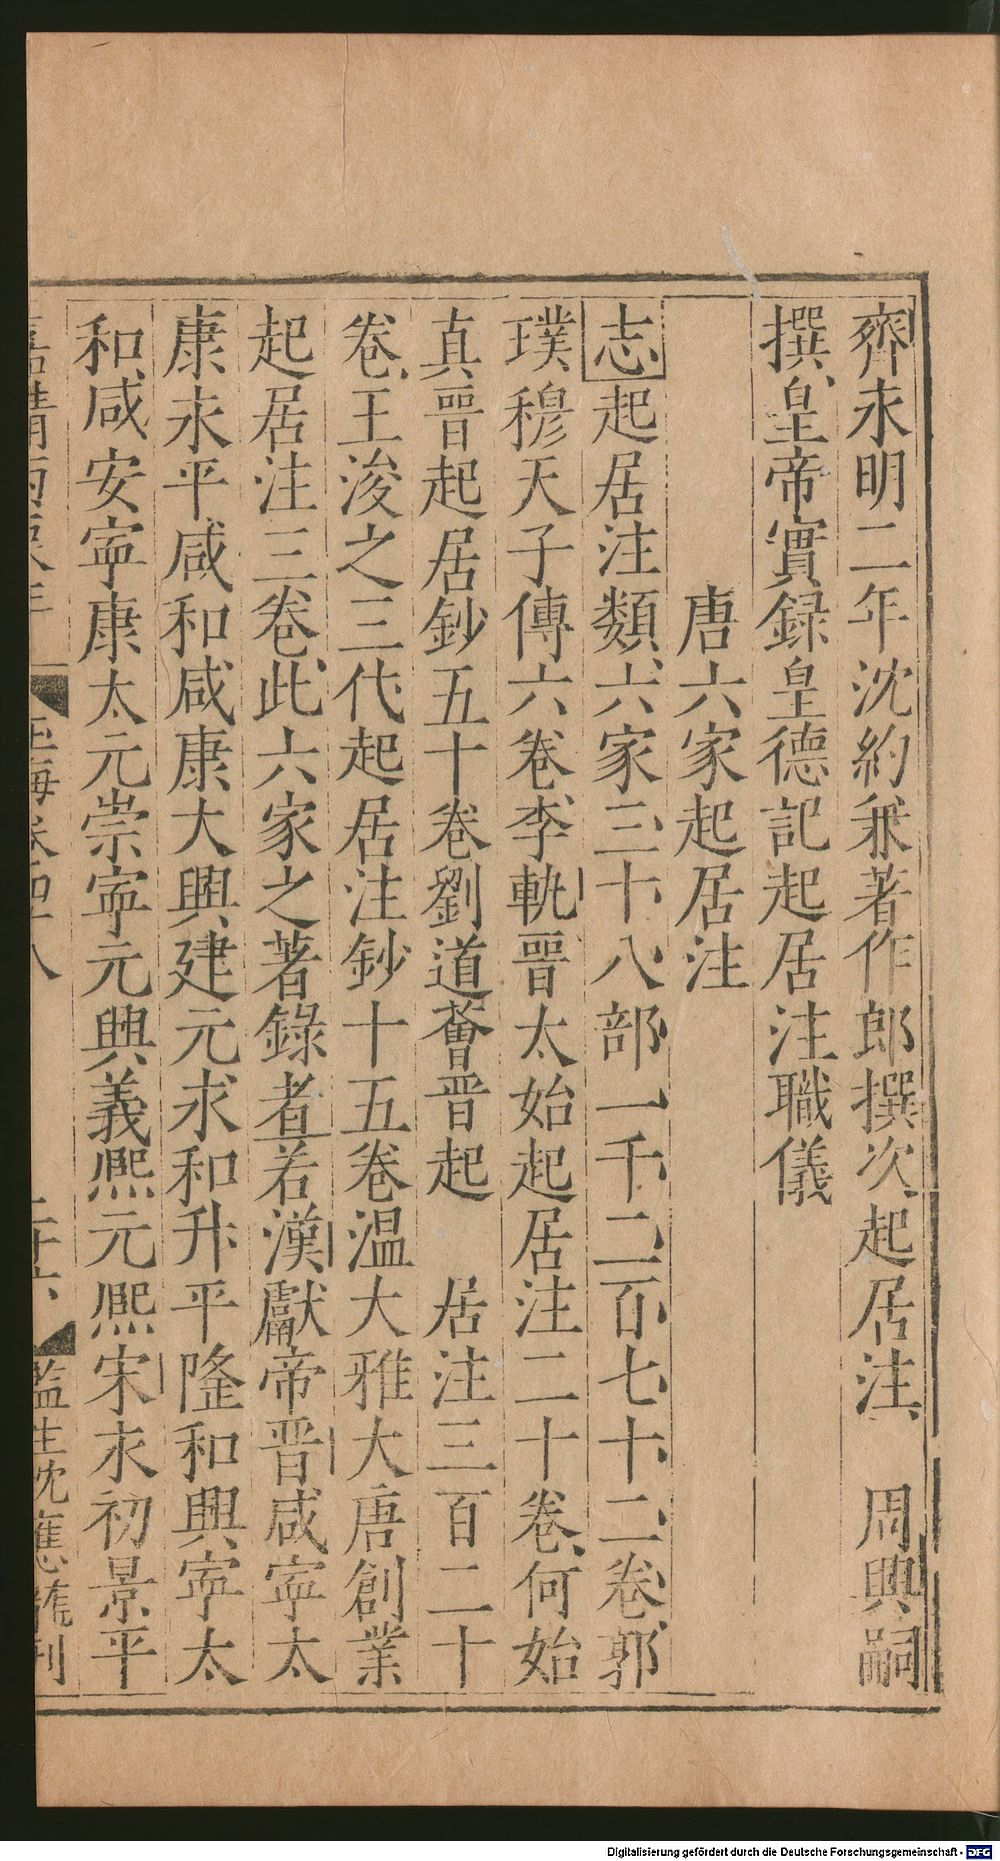 齊永明二年沈約兼著作郎撰次起居注　周興嗣
撰皇帝實録皇德記起居注職儀
唐六家起居注
志起居注類六家三十八部一千二百七十二卷郭
璞穆天子傳六卷李軌晉太始起居注二十卷何始
真晉起居鈔五十卷劉道薈晋起　居注三百二十
卷王浚之三代起居注鈔十五卷温大雅大唐創業
起居注三卷此六家之著錄者若漢獻帝晋咸寧太
康永平咸和咸康大興建元永和升平隆和興寧太
和咸安寧康太元崇寧元興義熙元熙宋永初景平
玉海卷四十八　二十六　監生沈應龍刊
Digitalisierung gefördert durch die Deutsche Forschungsgemeinschaft - DFG